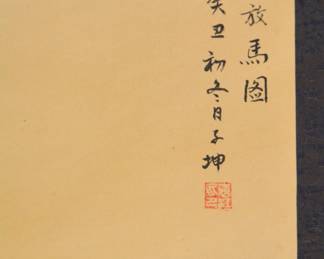 放馬图
癸丑初冬日子坤